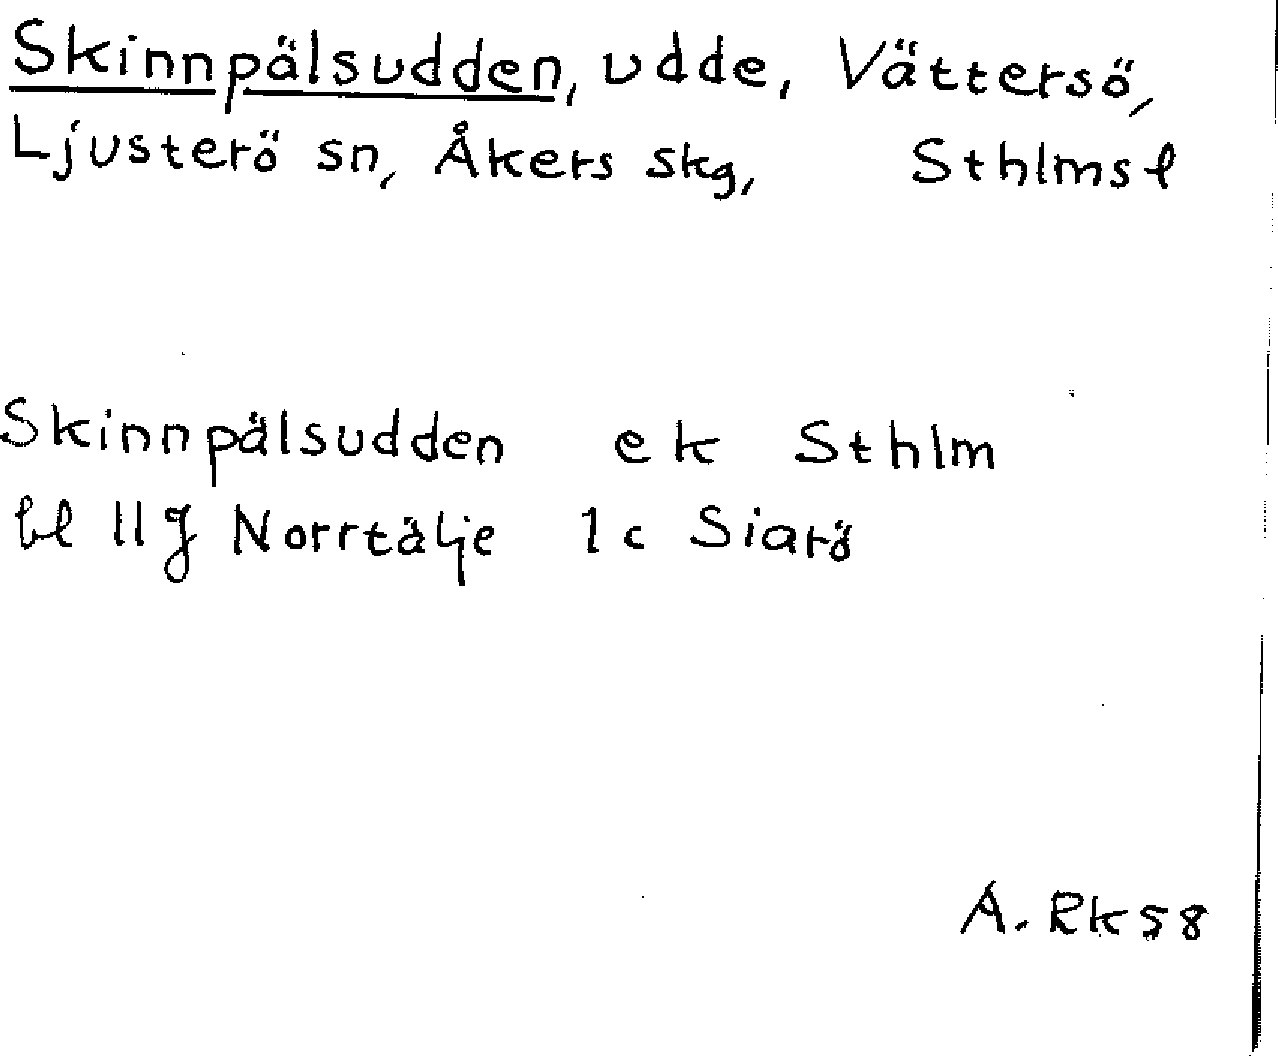 Skinnpälsudden, udde, Vättersö,
Ljusterö sn, Åkers skg, Sthlmsl
Skinnpälsudden ek Sthlm
bl 11J Norrtälje 1c Siarö
A. Rk 58